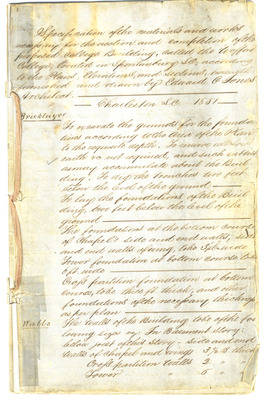 Specification of the materials and works
necessary for the erection and completion of the
proposed College Building, called the Wofford
College, located in Spartanburg S.C. according
to the Plans, Elevations, and sections,
furnished and drawn by Edward C Jones
Architect.
Charleston S.C. 1851
Bricklayer
To excavate the grounds for the founda
tions according to the lines of the Plan
to the requisite depth. To remove all
earth not required, and such
as may accumulate about the Buil
ding. To dig the trenches two feet
below the level of the ground
To lay the foundations of the Buil
ding, two feet below the level of the
ground
The foundations at the bottom course
of Chapel side and end walls,
and end walls of wing, to be
Tower foundation at bottom course to be
ft. wide
Cross partition foundation at bottom
course, to be ft. thick, and other
foundations of the necessary thickness
as per plan
Walls
The walls of the Building to be of the fol
lowing size viz. In Basement Story:
below joist of first story. Side and end
walls of chapel and wings thick
Cross partition walls 2
Tower 5